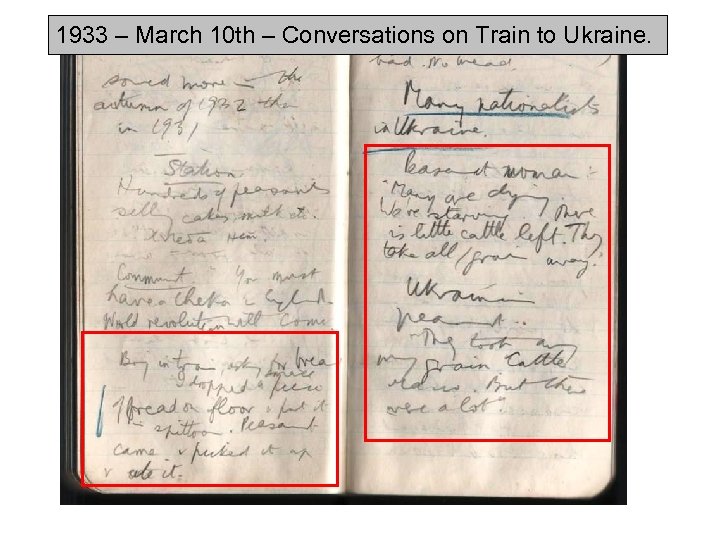 1933 – March 10th – Conversations on Train to Ukraine.
sowed more in the
autumn of 1932 than
in 1931
Station
Hundreds of peasants
selling cakes milk etc.
Communist "You must
have a Cheka in England
World revolution will come.
Boy in train asking for bread
I dropped a piece
of bread on floor & put it
in spittoon. Peasant
came & picked it up
& ate it.
bad. No bread.
Many nationalists
in Ukraine.
woman :-
"Many are dying
We're starving there
is little cattle left. They
take all grain away."
Ukrainian
peasant..
"They took away
my grain Cattle
. But there
were a lot".